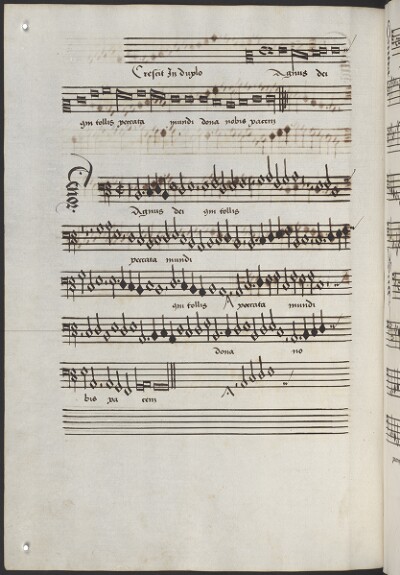 Crescit In duplo Agnus dei
qui tollis peccata mundi dona nobis pacem
Tenor.
Agnus dei qui tollis
peccata mundi
qui tollis peccata mundi
dona no
bis pa cem